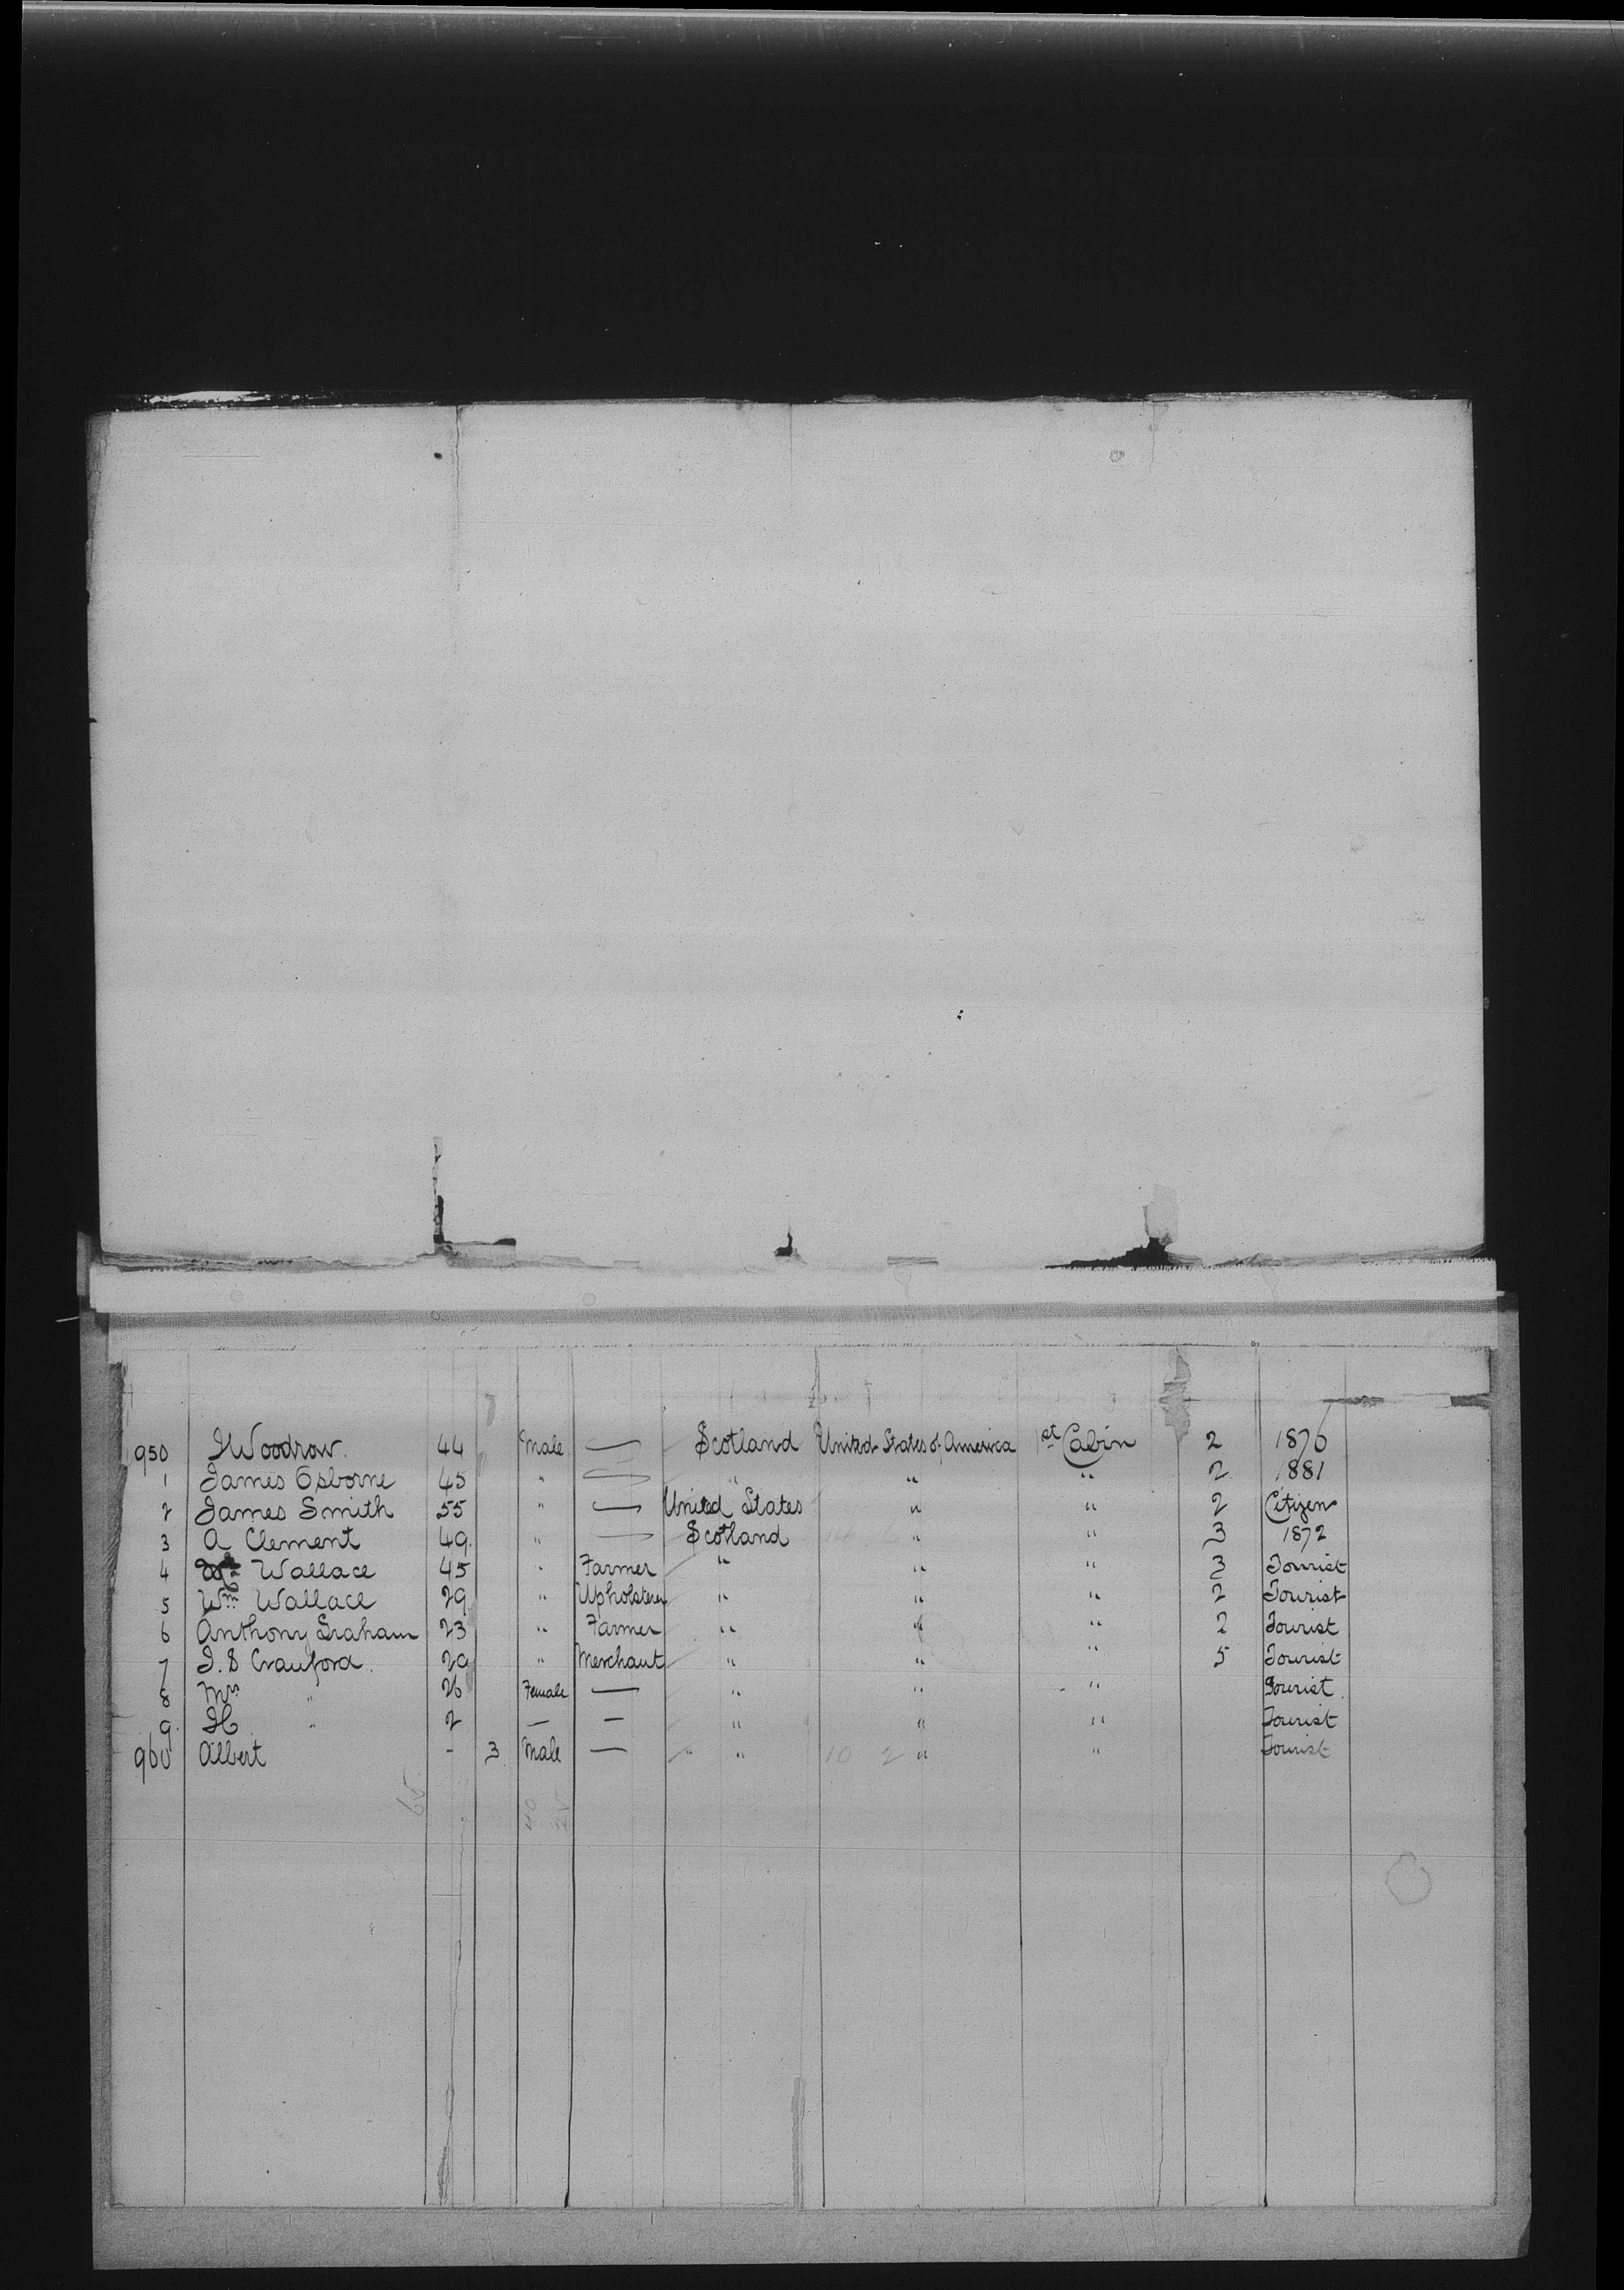 950 J Woodrow. 44 Male — Scotland United States of America 1st Cabin 2 1876
1 James Osborne 45 " — " " " 2 1881
2 James Smith 55 " — United States " " 2 Citizen
3 A Clement 49 " — Scotland " " 3 1872
4 Wallace 45 " Farmer " " " 3 Tourist
5 Wm Wallace 29 " Upholsterer " " " 2 Tourist
6 Anthony Graham 23 " Farmer " " " 2 Tourist
7 J. S Crawford. 29 " Merchant " " " 5 Tourist
8 Mrs " 26 Female — " " " Tourist
9 " 2 — — " " " Tourist
960 Albert - 3 Male — " " 10 2 " " Tourist